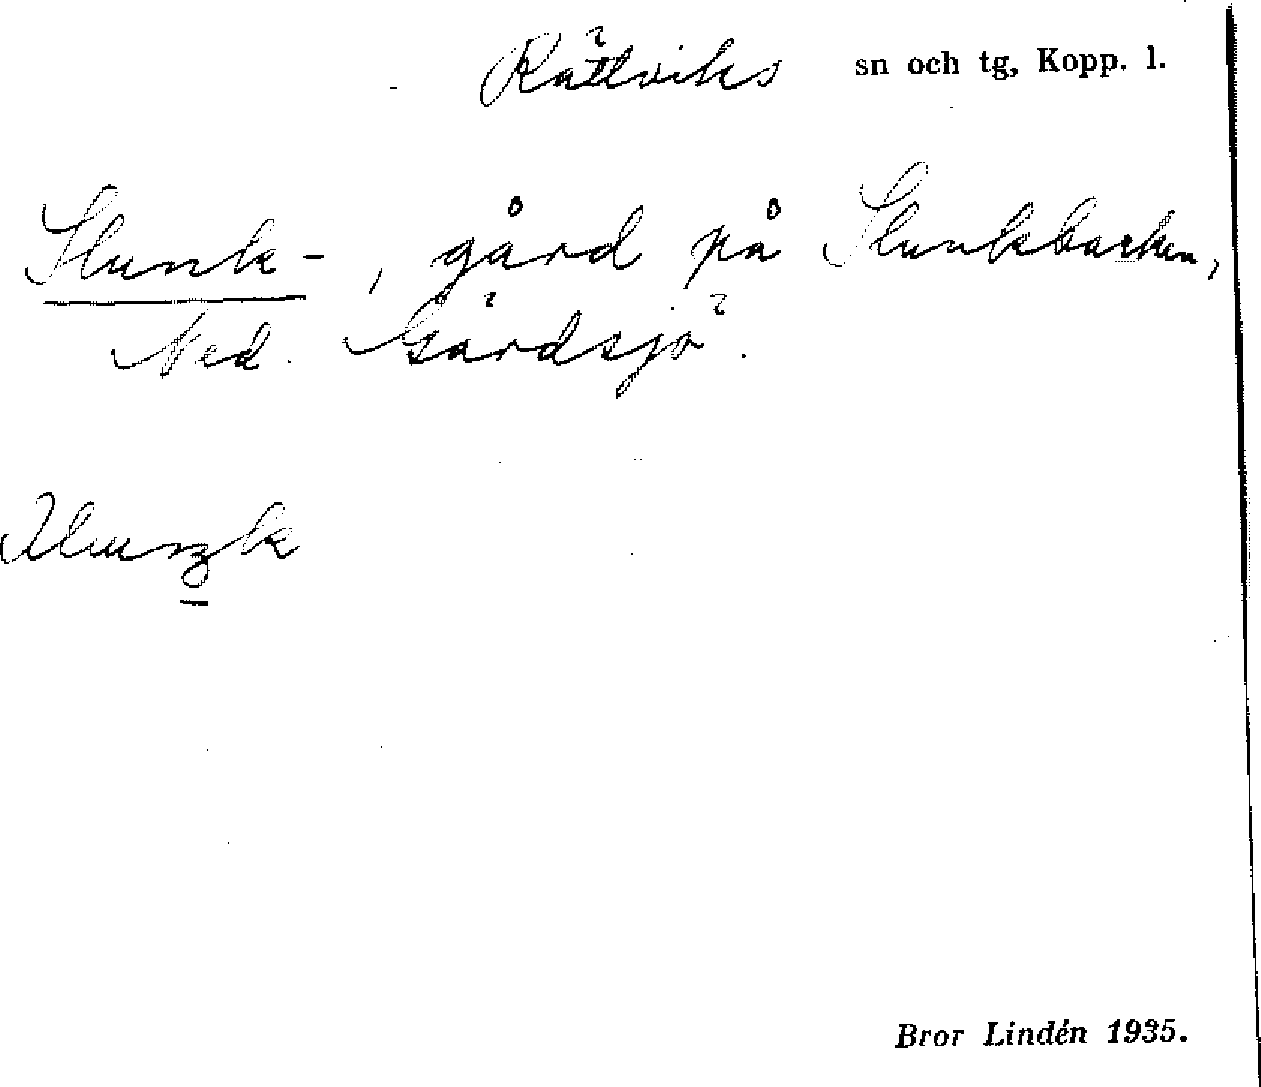 Rättviks sn och tg, Kopp. l.
Slunk-, gård på Slunkbacken,
Ned. Gärdsjö.
Bror Lindén 1935.